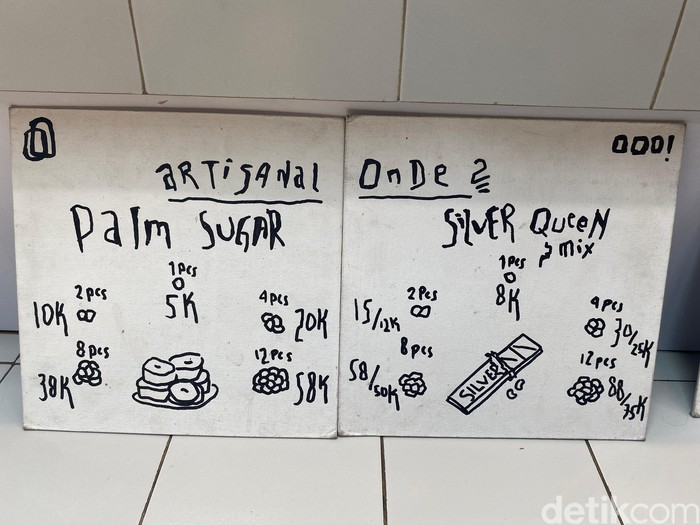 aRTiSANal OnDe 2
ooo!
Palm SUGAR
1pcs
5K
2pcs
10K
4pcs
20K
8pcs
38K
12pcs
58K
SilVER QueeN
mix
1pcs
8K
2pcs
15/12K
4pcs
30/25K
8pcs
58/50K
12pcs
88/75K
SILVER
detikcom